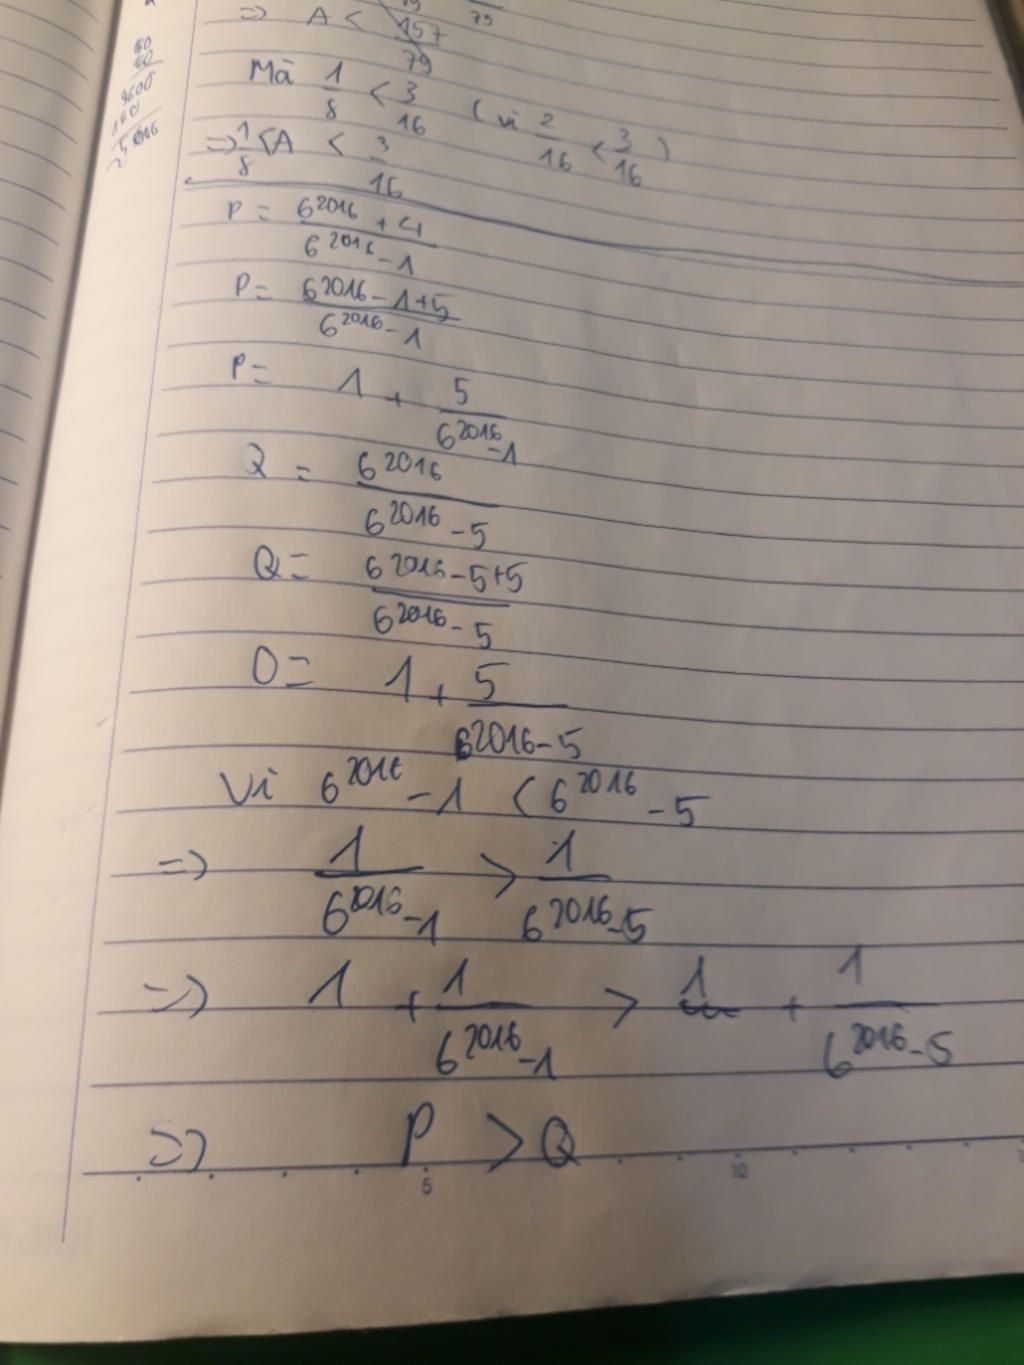 => A < 157/79
79
Mà 1/8 < 3/16 (vì 2/16 < 3/16)
=> 1/8 < A < 3/16
P = 6^2016 + 4 / 6^2016 - 1
P = 6^2016 - 1 + 5 / 6^2016 - 1
P = 1 + 5 / 6^2016 - 1
Q = 6^2016 / 6^2016 - 5
Q = 6^2016 - 5 + 5 / 6^2016 - 5
O = 1 + 5 / 6^2016 - 5
Vì 6^2016 - 1 < 6^2016 - 5
=> 1 / 6^2016 - 1 > 1 / 6^2016 - 5
=> 1 + 1 / 6^2016 - 1 > 1 + 1 / 6^2016 - 5
=> P > Q
5 10